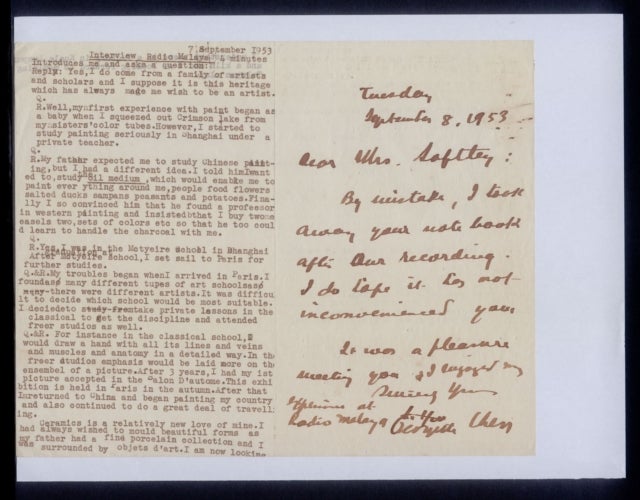 7 September 1953
Interview Radio Malaya 5 minutes
Introduces me and asks a question:
Reply: Yes,I do come from a family of artists
and scholars and I suppose it is this heritage
which has always made me wish to be an artist.
Q.
R.Well,my first experience with paint began as
a baby when I squeezed out Crimson Lake from
my sisters' color tubes.However,I started to
study painting seriously in Shanghai under a
private teacher.
Q.
R.My father expected me to study Chinese paint-
ing,but I had a different idea.I told him I want
ed to study oil medium,which would enable me to
paint ever ything around me,people food flowers
salted ducks sampans peasants and potatoes.Fina-
lly I so convinced him that he found a professor
in western painting and insisted that I buy two
easels two,sets of colors etc so that he too coul
d learn to handle the charcoal with me.
Q.
R.Yes,I was in the Motyeire School in Shanghai
After Motyeire School,I set sail to Paris for
further studies.
Q.&R.My troubles began when I arrived in Paris.I
found many different types of art schools
many there were different artists.It was difficu
lt to decide which school would be most suitable.
I decided to study from take private lessons in the
classical to get the discipline and attended
freer studios as well.
Q.&R. For instance in the classical school,I
would draw a hand with all its lines and veins
and muscles and anatomy in a detailed way.In th
freer studios emphasis would be laid more on th
ensembel of a picture.After 3 years,I had my 1st
picture accepted in the Salon D'autome.This exhi
bition is held in Paris in the autumn.After that
I returned to China and began painting my country
and also continued to do a great deal of travell
ing.
Ceramics is a relatively new love of mine.I
had always wished to mould beautiful forms as
my father had a fine porcelain collection and I
was surrounded by objets d'art.I am now looking
Tuesday
September 8, 1953
Dear Mrs. Softley:
By mistake, I took
away your note book
after our recording.
I do hope it has not
inconvenienced you.
It was a pleasure
meeting you & I enjoyed my
experience at
Radio Malaya
Sincerely Yours
Georgette Chen